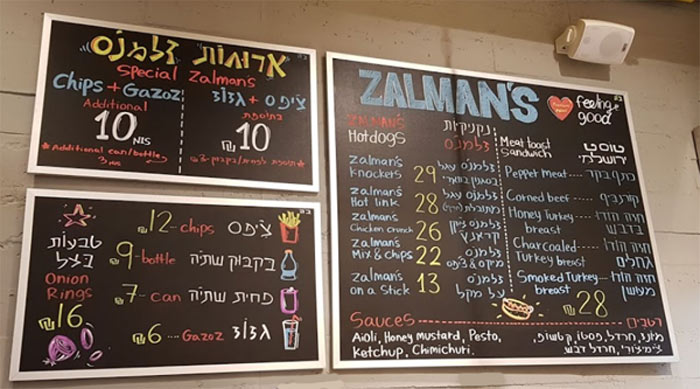 ב"ה
ארוחות זלמנס
Special Zalman's
Chips + Gazoz
צ'יפס + גזוז
Additional
בתוספת
10 NIS
10 ₪
* Additional can/bottle
3 NIS
ב"ה
₪12 --- chips צ'יפס
₪9 - bottle בקבוק שתיה
₪7 - can פחית שתיה
₪6 --- Gazoz גזוז
טבעות
בצל
Onion
Rings
₪16
ב"ה
ZALMAN'S
feeling
good
ZALMAN'S
Hotdogs
נקניקיות
זלמנס
Zalman's
Knockers 29
zalman's
Hot link 28
zalmans
Chicken Crunch 26
zalman's
Mix & chips 22
zalmans
on a Stick 13
על מקל
Meat toast
Sandwich
טוסט
ירושלמי
Pepper meat
Corned beef
Honey Turkey
breast
חזה הודו
בדבש
Charcoaled
Turkey breast
חזה הודו
גחלים
Smoked Turkey
breast
חזה הודו
מעושן
₪28
Sauces
רטבים
Aioli, Honey Mustard, Pesto,
Ketchup, Chimichuri.
חרדל, פסטו, קטשופ,
צ'ימיצ'ורי, חרדל דבש